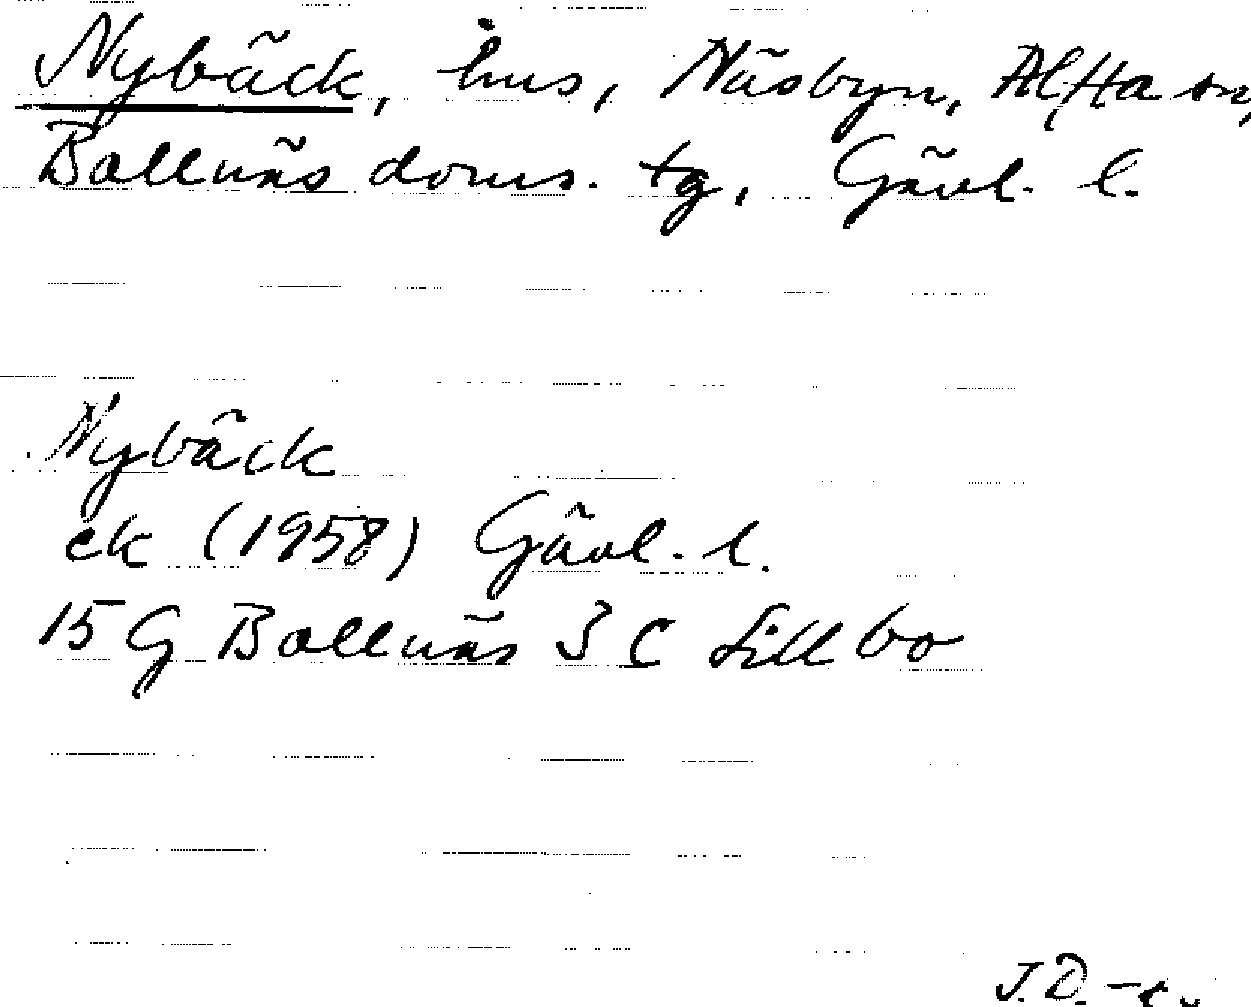 Nybäck, hus, Näsbyn, Alfta sn,
Bollnäs doms. tg, Gävl. l.
Nybäck
ek (1958) Gävl. l.
15 G Bollnäs 3 c Sillbo
J.D.